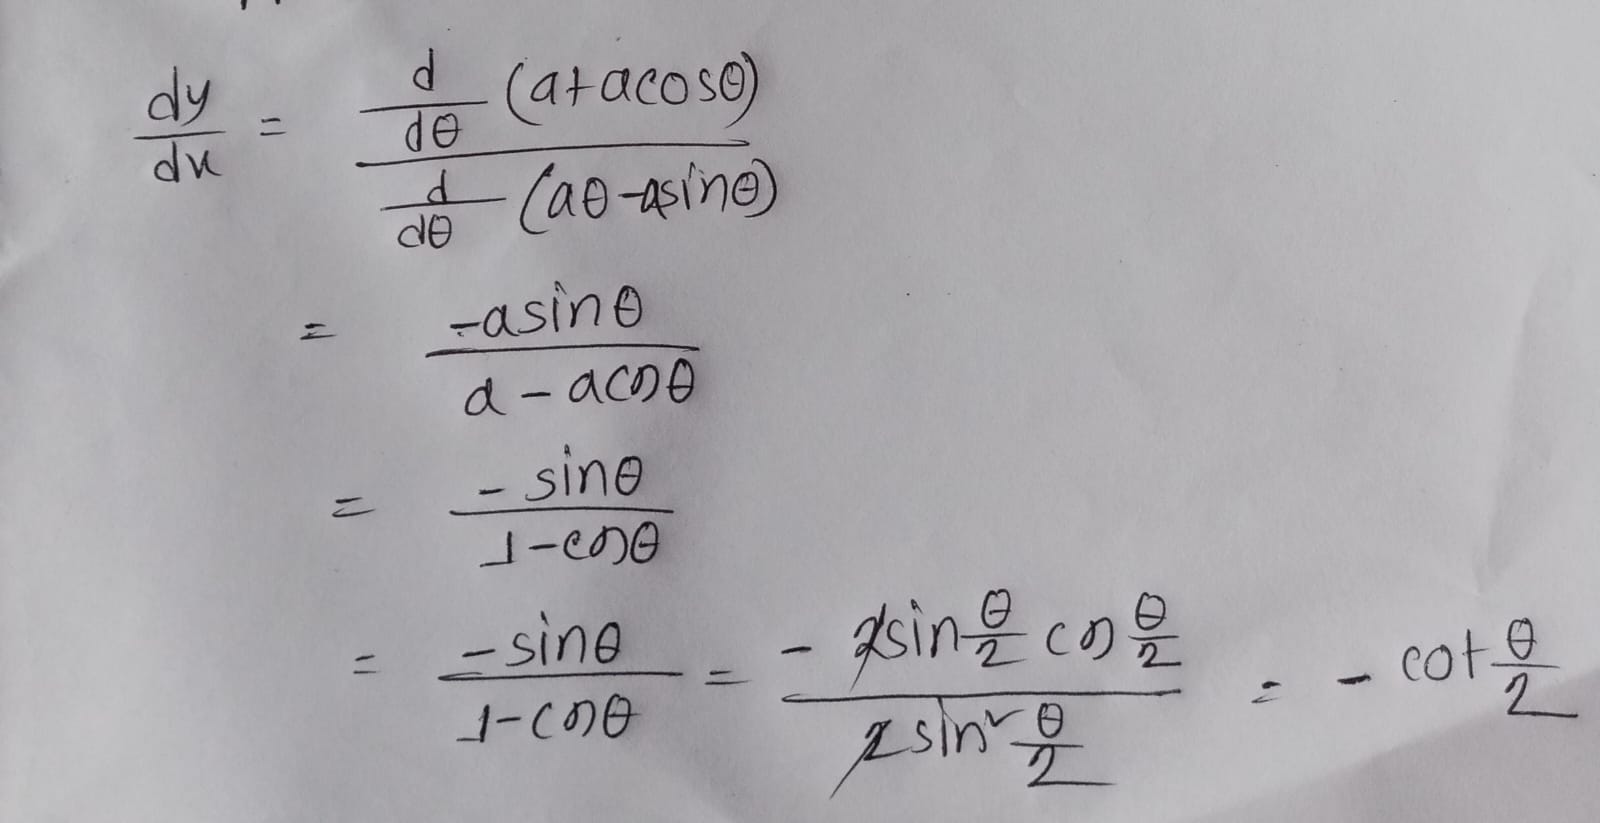 dy/dx = d/dθ (a+acosθ) / d/dθ (aθ-asinθ)
= -asinθ / a-acosθ
= -sinθ / 1-cosθ
= -sinθ / 1-cosθ = -2sin θ/2 cos θ/2 / 2sin² θ/2 = -cot θ/2